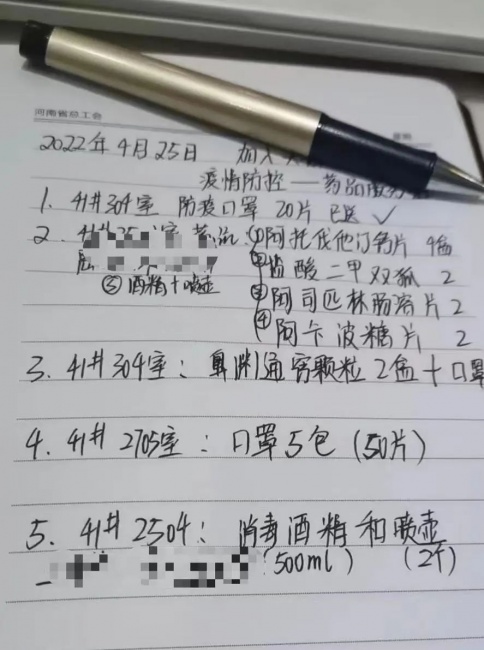 河南省总工会
2022年4月25日 加入
疫情防控——药品服务
1. 41#304室 防疫口罩 20片 已送 ✓
2. 41# 室 ①阿托伐他汀钙片 4盒
②盐酸二甲双狐 2
⑤酒精+喷壶 ③阿司匹林肠溶片 2
④阿卡波糖片 2
3. 41#304室: 鼻渊通窍颗粒 2盒+口罩
4. 41# 2705室: 口罩5包 (50片)
5. 41# 2504: 消毒酒精和喷壶
(500ml) (2个)